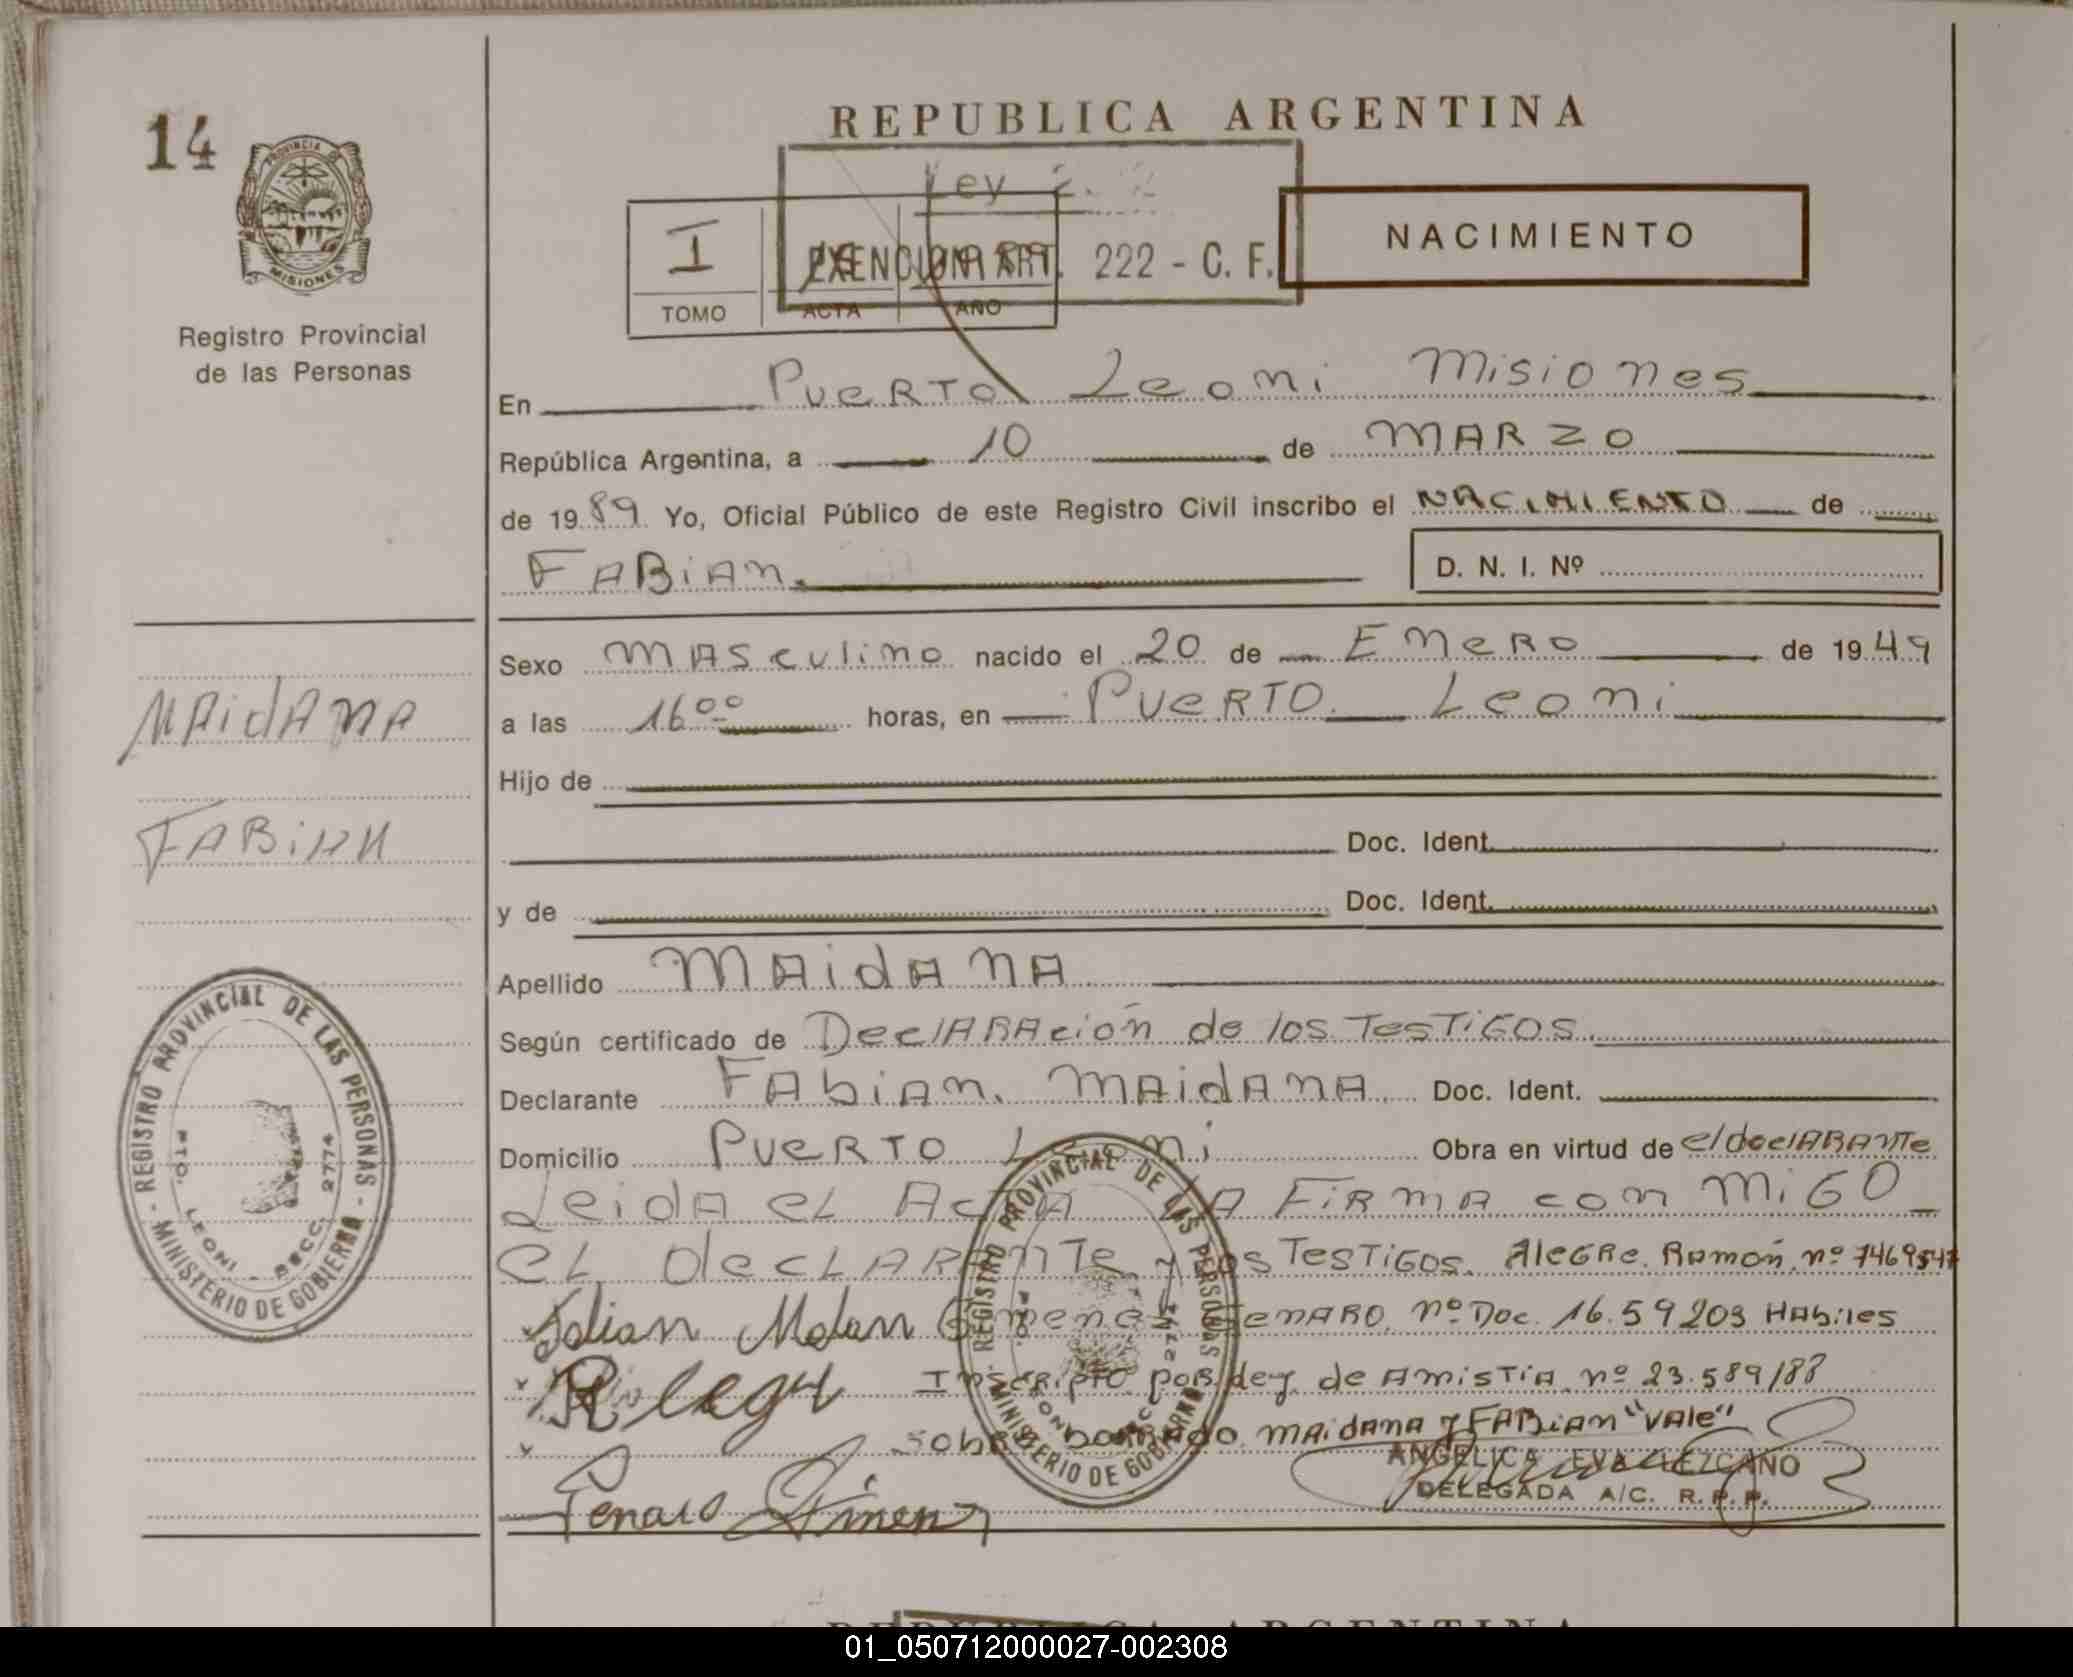 REPUBLICA ARGENTINA
14
PROVINCIA DE
MISIONES
Registro Provincial
de las Personas
Ley
EXENCION ART. 222 - C. F.
NACIMIENTO
I
TOMO ACTA AÑO
En Puerto Leoni Misiones
República Argentina, a 10 de MARZO
de 1989 Yo, Oficial Público de este Registro Civil inscribo el NACIMIENTO de
FABiAn.
D. N. I. Nº
Sexo MAsculino nacido el 20 de Enero de 1949
a las 16 00 horas, en Puerto Leoni
Hijo de
Doc. Ident.
y de Doc. Ident.
Apellido MAidAnA
Según certificado de DeclARAción de los TesTiGos.
Declarante FAbiAn. MAidAnA. Doc. Ident.
Domicilio Puerto Leoni Obra en virtud de el declARAnTe
Leida el ActA LA FiRMA con MiGO
eL decLARAnTe y Los TesTiGos. AleGRe. RAmón. nº 7469547
Gimenez GenARO. nº Doc. 16.59203 HAbiles
Inscripto por Ley de AmisTiA nº 23.589/88
sobre borrado MAidAnA y FABiAn "VAle"
Genaro Gimenez
ANGELICA EVA LEZCANO
DELEGADA A/C. R. P. P.
MAidAnA
FABiAN
REGISTRO PROVINCIAL DE LAS PERSONAS - MINISTERIO DE GOBIERNO -
PTO. LEONI - SECC. 2774
REGISTRO PROVINCIAL DE LAS PERSONAS - MINISTERIO DE GOBIERNO
REPUBLICA ARGENTINA
01_050712000027-002308